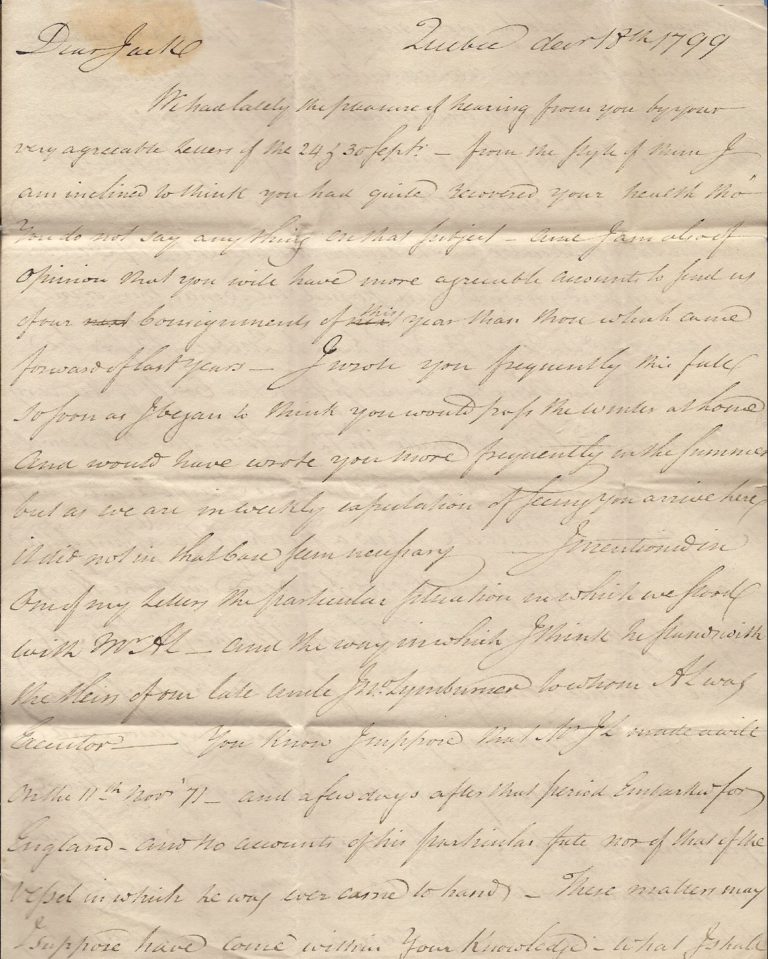 Dear Jack Quebec decr 18th 1799
We had lately the pleasure of hearing from you by your
very agreeable Letters of the 24 & 30 Septr. – from the style of them I
am inclined to think you had quite recovered your health tho'
You do not say any thing on that subject – and I am also of
Opinion that you will have more agreeable accounts to send us
of our next Consignments of this year than those which came
forward of last years – I wrote you frequently this fall
so soon as I began to think you would pass the winter at home
and would have wrote you more frequently in the Summer
but as we are in weekly expectation of seeing you arrive here
it did not in that Case seem necessary – I mentioned in
One of my Letters the particular situation in which we stood
with Mr AL – and the way in which I think he stands with
the Heirs of our late uncle Jno. Lymburner to whom AL was
Executor – You know I suppose that Mr JL made a will
On the 11th Novr 71 – and a few days after that period Embarked for
England – and no accounts of his particular fate nor of that of the
Vessel in which he was ever came to hand – These matters may
I suppose have come within Your knowledge – what I shall